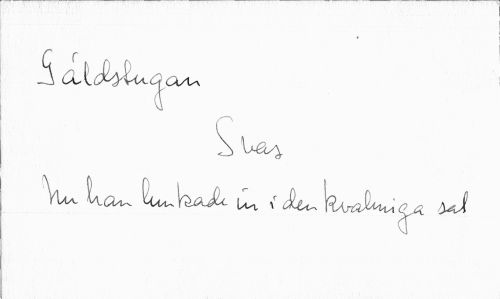 Gäldstugan
Svas
Nu han lunkade in i den kvalmiga sal